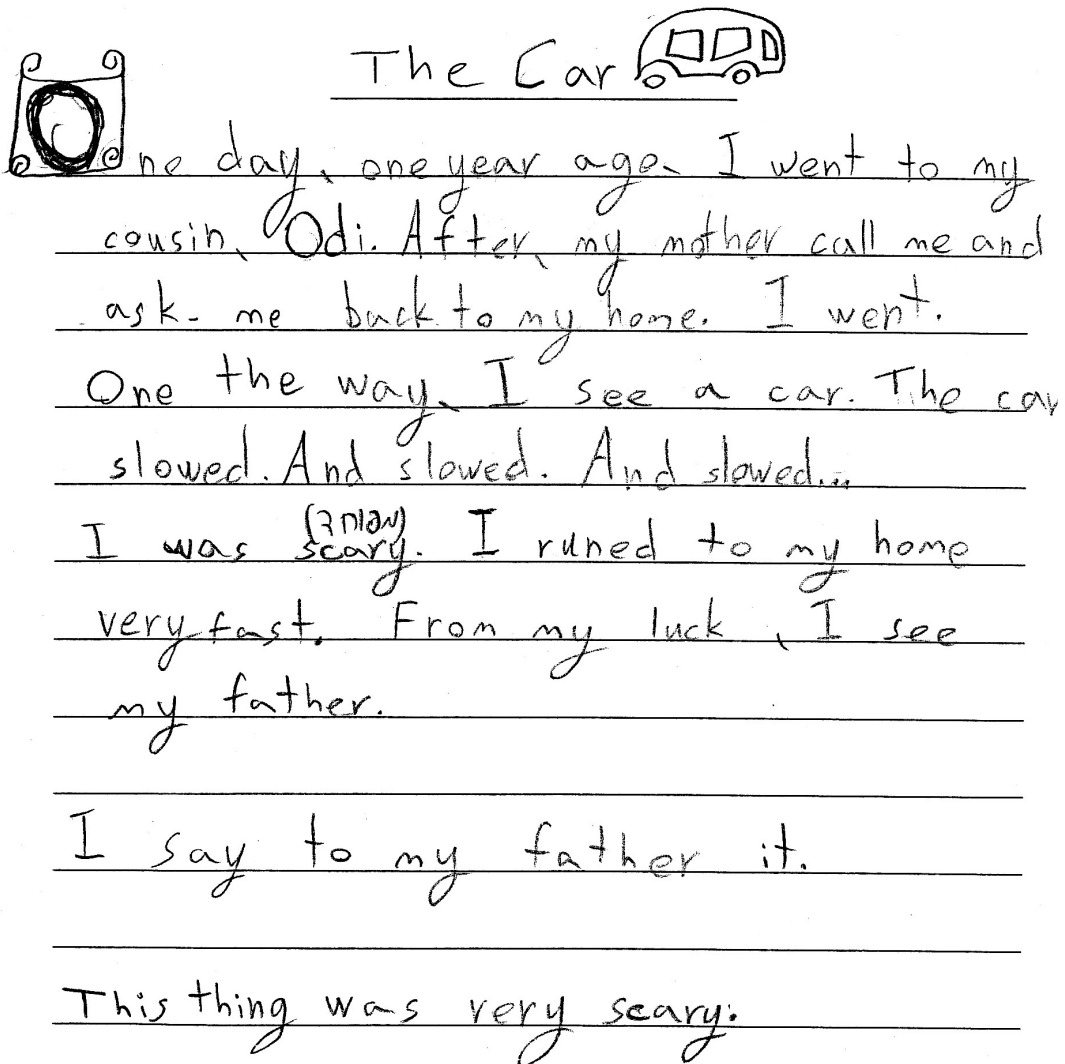 The Car
One day, one year ago, I went to my
cousin, Odi. After, my mother call me and
ask me back to my home. I went.
One the way, I see a car. The car
slowed. And slowed. And slowed...
(מפוחד)
I was scary. I runed to my home
very fast. From my luck, I see
my father.
I say to my father it.
This thing was very scary.